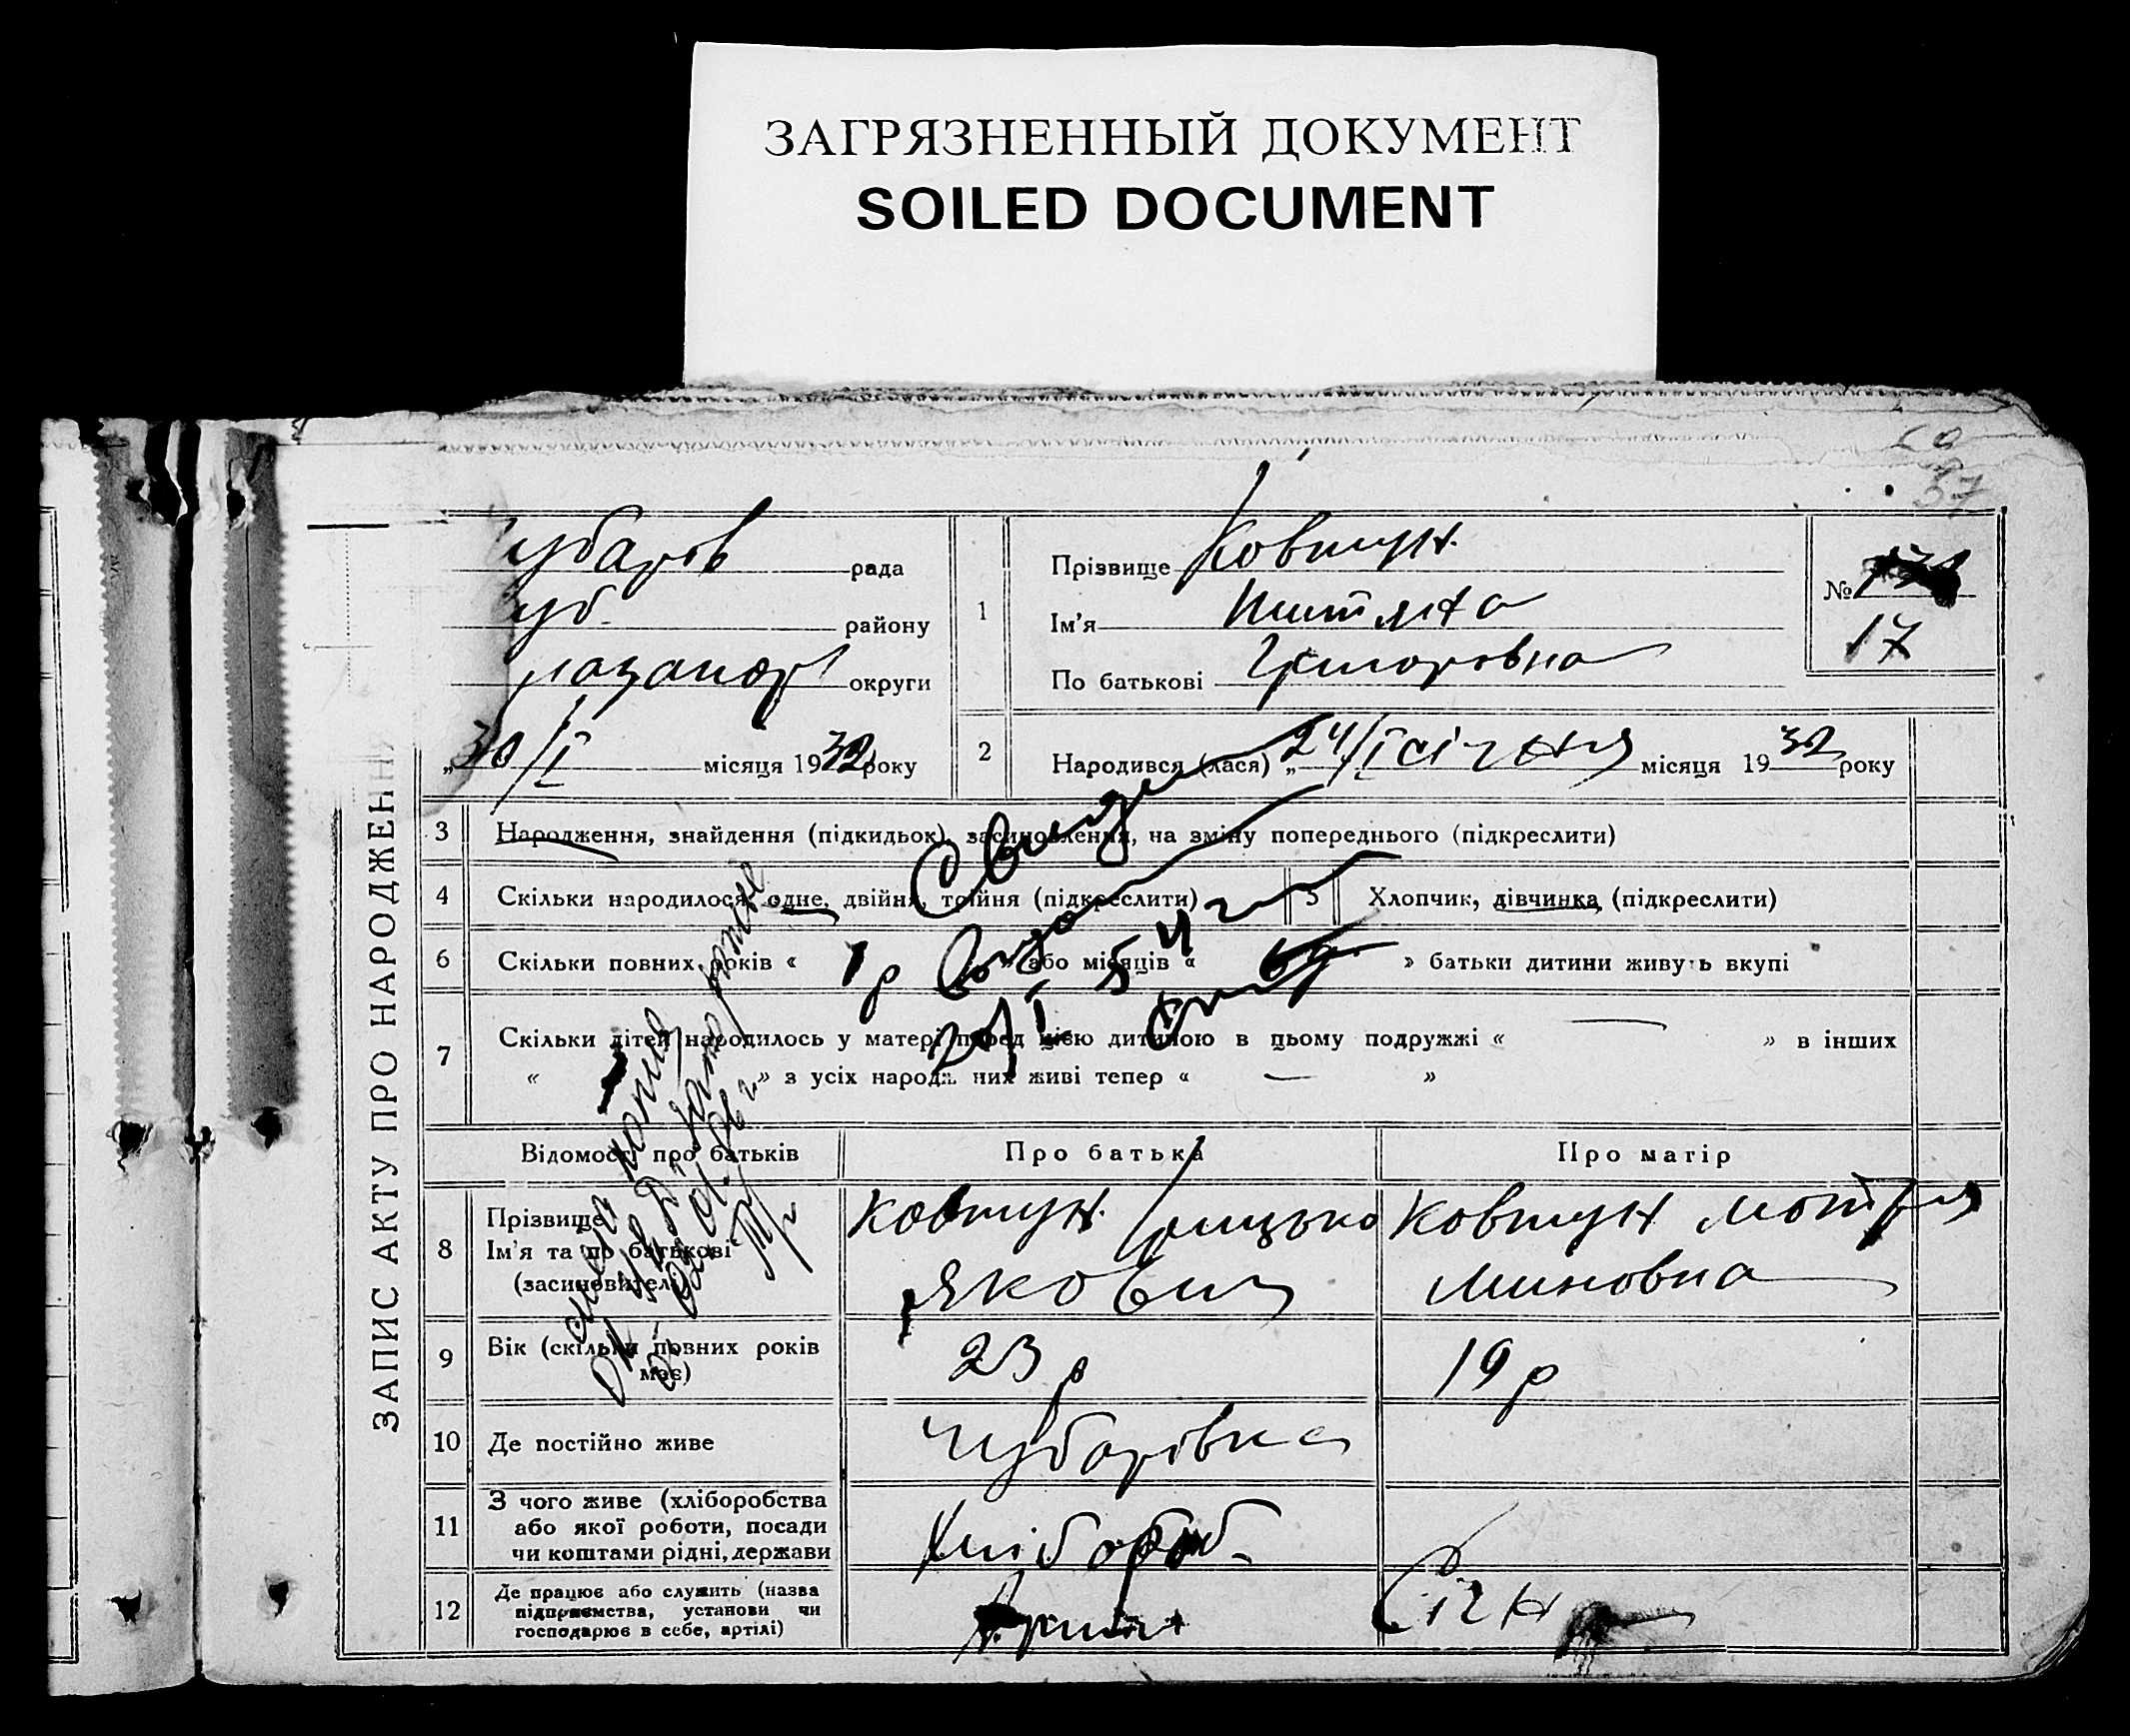 ЗАГРЯЗНЕННЫЙ ДОКУМЕНТ
SOILED DOCUMENT
37
ЗАПИС АКТУ ПРО НАРОДЖЕНН
убарів рада
уб. району
округи
„30/І місяця 1932 року
1
Прізвище Ковтун
Ім'я
По батькові Григоровна
№
17
2
Народився (лася) „24/І січня місяця 1932 року
3 Народження, знайдення (підкидьок), засиновлення, на зміну попереднього (підкреслити)
4 Скільки народилося: одне, двійня, трійня (підкреслити)
5 Хлопчик, дівчинка (підкреслити)
6 Скільки повних років « 1 р » або місяців « » батьки дитини живуть вкупі
7 Скільки дітей народилось у матері перед цією дитиною в цьому подружжі « — » в інших
« » з усіх народжених живі тепер « — »
Відомості про батьків
Про батька
Про матір
8 Прізвище
Ім'я та по батькові
(засиновителі)
Ковтун Грицько
Якович
Ковтун Мотря
Миновна
9 Вік (скільки повних років
має)
23 р
19 р
10 Де постійно живе
Чубарівка
11 З чого живе (хліборобства
або якої роботи, посади
чи коштами рідні, держави
Хлібороб.
12 Де працює або служить (назва
підприємства, установи чи
господарює в себе, артілі)